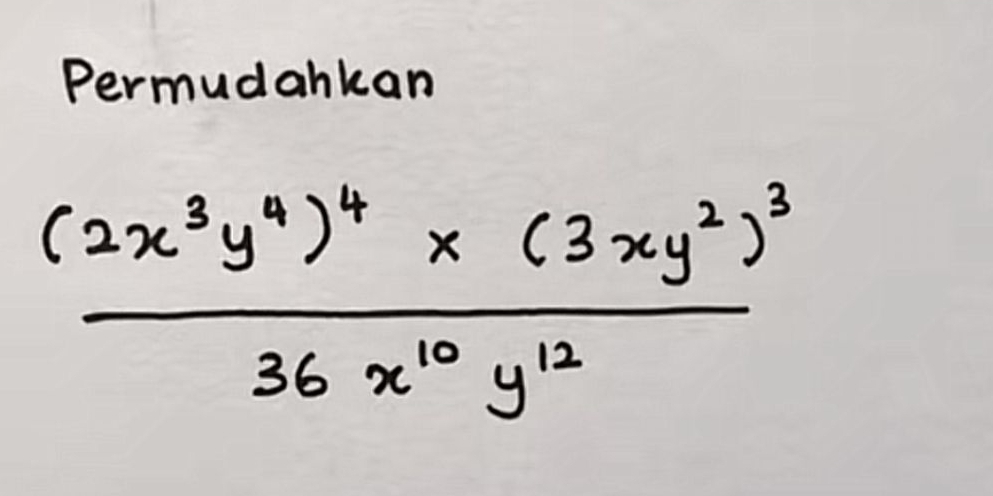 Permudahkan
(2x³y⁴)⁴ × (3xy²)³
36 x¹⁰ y¹²